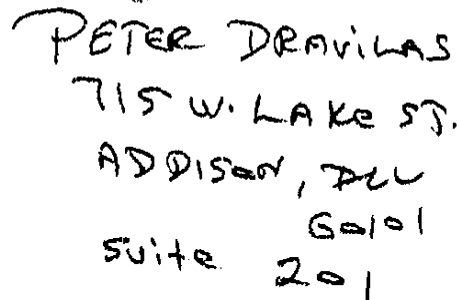 PETER DRAVILAS
715 W. LAKE ST.
ADDISON, ILL
60101
Suite 201